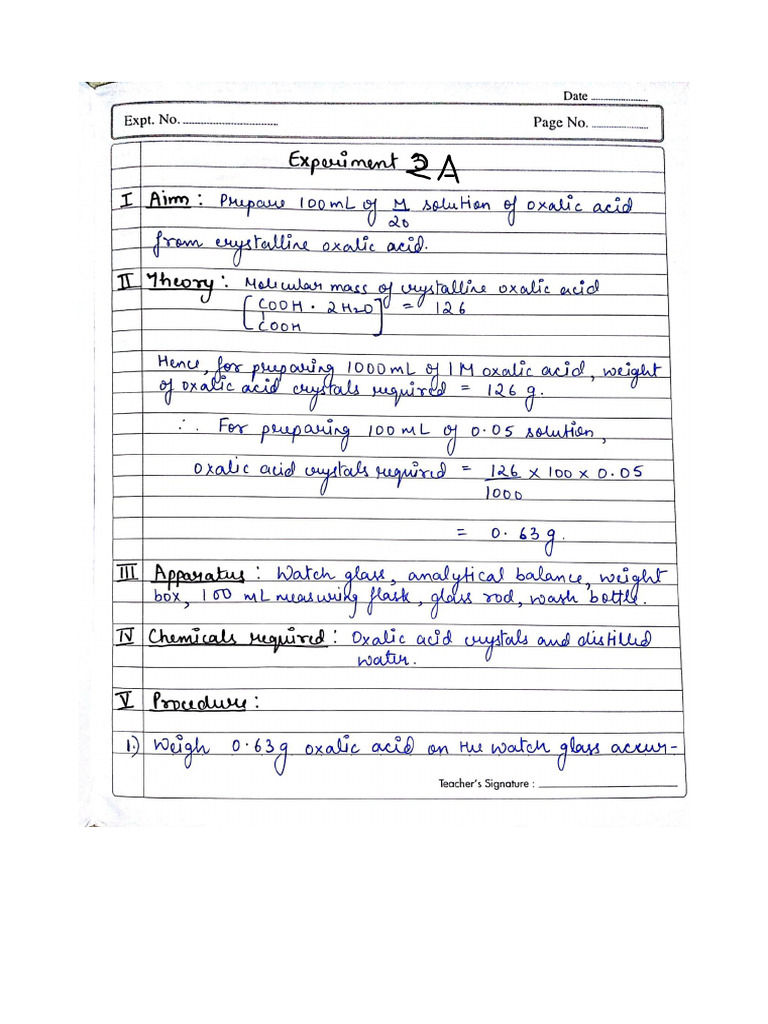 Date
Expt. No.
Page No.
Experiment 2A
I Aim : Prepare 100 mL of M/20 solution of oxalic acid
from crystalline oxalic acid.
II Theory : Molecular mass of crystalline oxalic acid
[COOH . 2H2O] = 126
COOH
Hence, for preparing 1000 mL of 1M oxalic acid, weight
of oxalic acid crystals required = 126 g.
∴ For preparing 100 mL of 0.05 solution,
oxalic acid crystals required = 126 x 100 x 0.05
1000
= 0.63 g.
III Apparatus : Watch glass, analytical balance, weight
box, 100 mL measuring flask, glass rod, wash bottle.
IV Chemicals required : Oxalic acid crystals and distilled
water.
V Procedure :
1.) Weigh 0.63g oxalic acid on the watch glass accur-
Teacher's Signature :